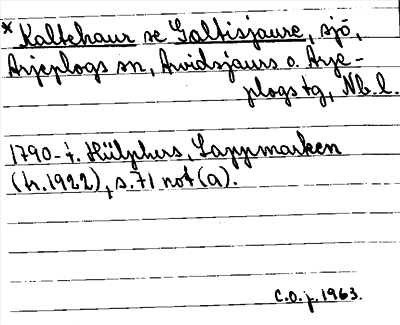 * Kaltehaur se Galtisjaure, sjö,
Arjeplogs sn, Arvidsjaurs o. Arje-
plogs tg, Nb.l.
1790-t. Hülphers, Lappmarken
(tr. 1922), s. 71 not (a).
C.O.j. 1963.